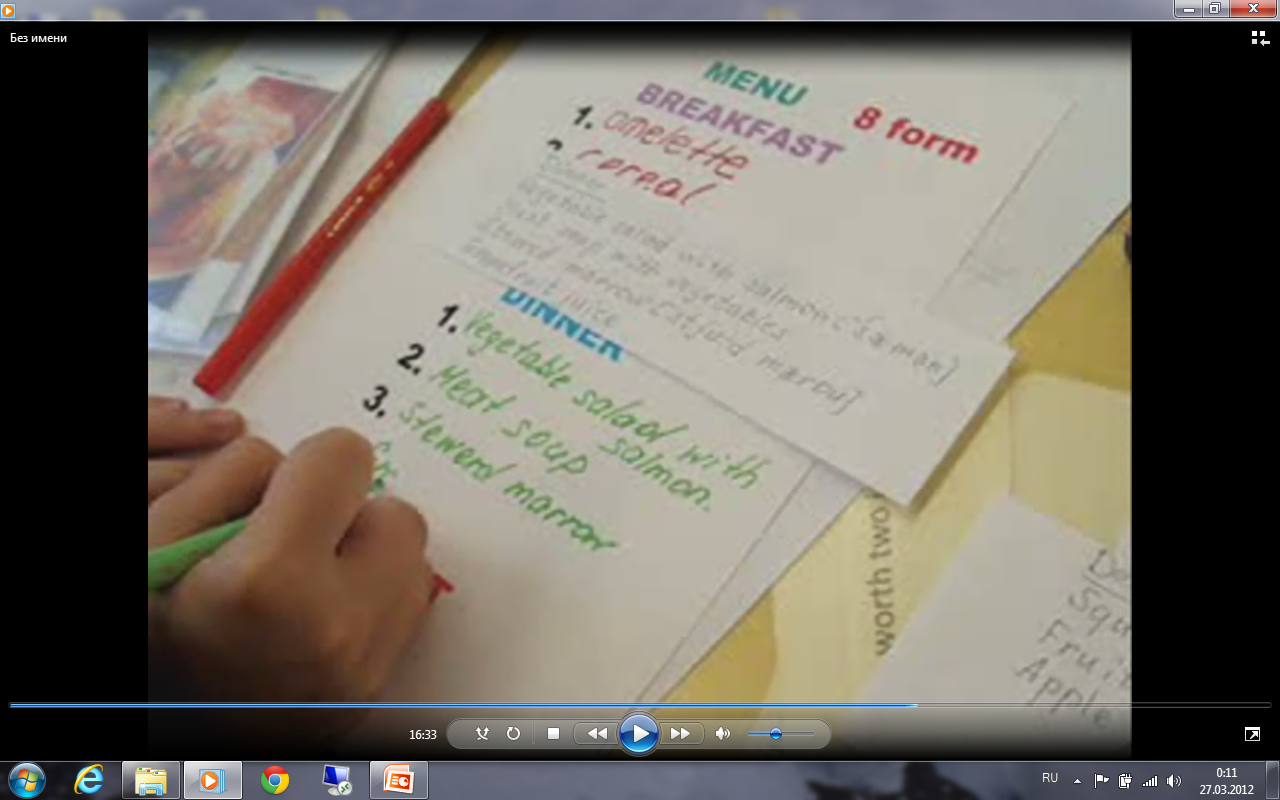 Без имени
MENU
8 form
BREAKFAST
1. omelette
cereal
Dinner
Vegetable salad with salmon ['sæmən]
Meat soup with vegetables
Stewed marrow
juice
DINNER
1. Vegetable salad with
salmon.
2. Meat soup
3. Stewerd marrow
T
worth two
De
Squ
Frui
Apple
16:33
RU
0:11
27.03.2012